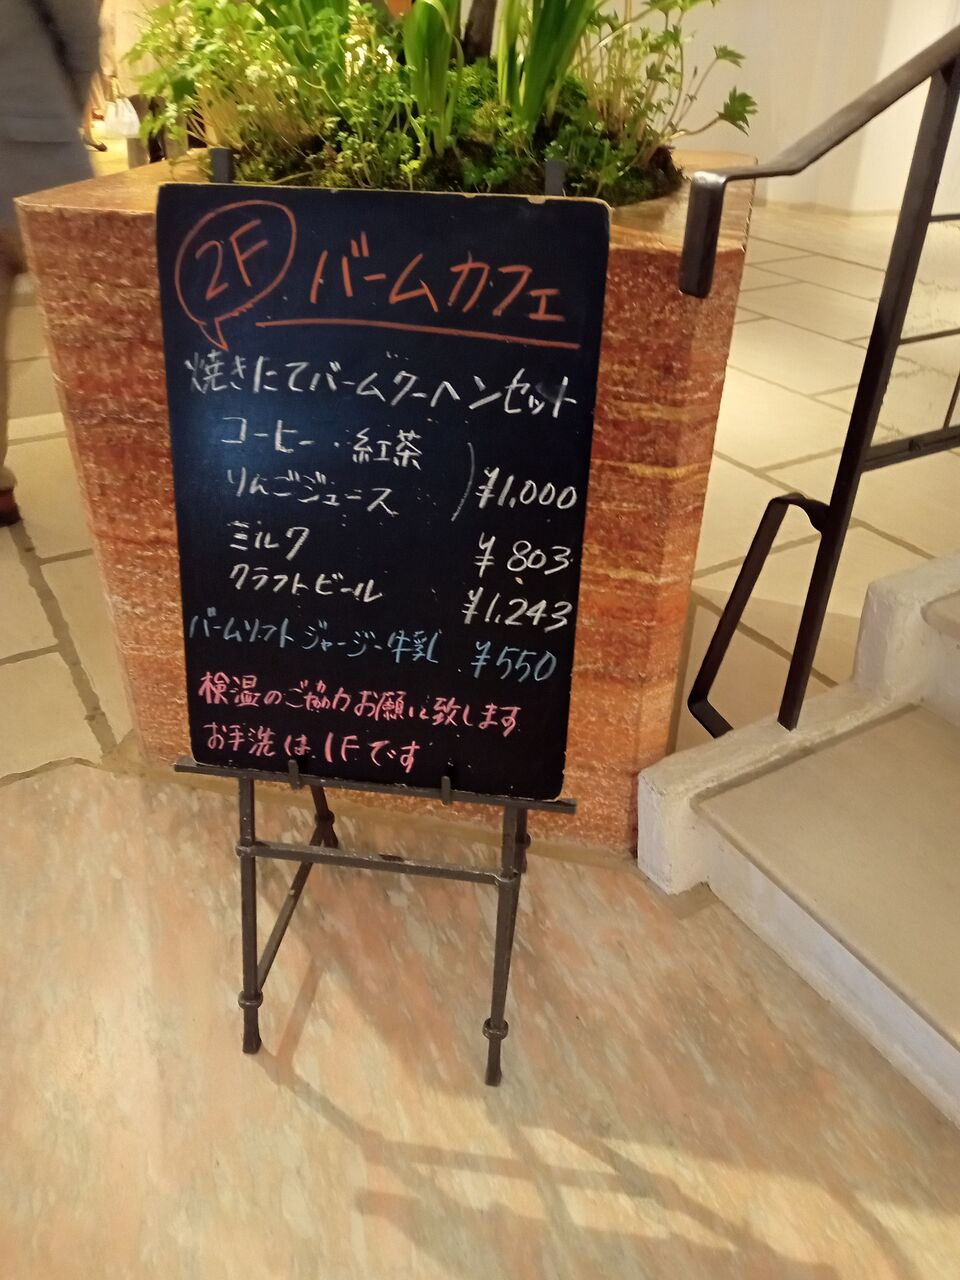 2F バームカフェ
焼きたてバームクーヘンセット
コーヒー・紅茶
りんごジュース ¥1,000
ミルク ¥803
クラフトビール ¥1,243
バームソフト ジャージー牛乳 ¥550
検温のご協力お願い致します
お手洗は1Fです